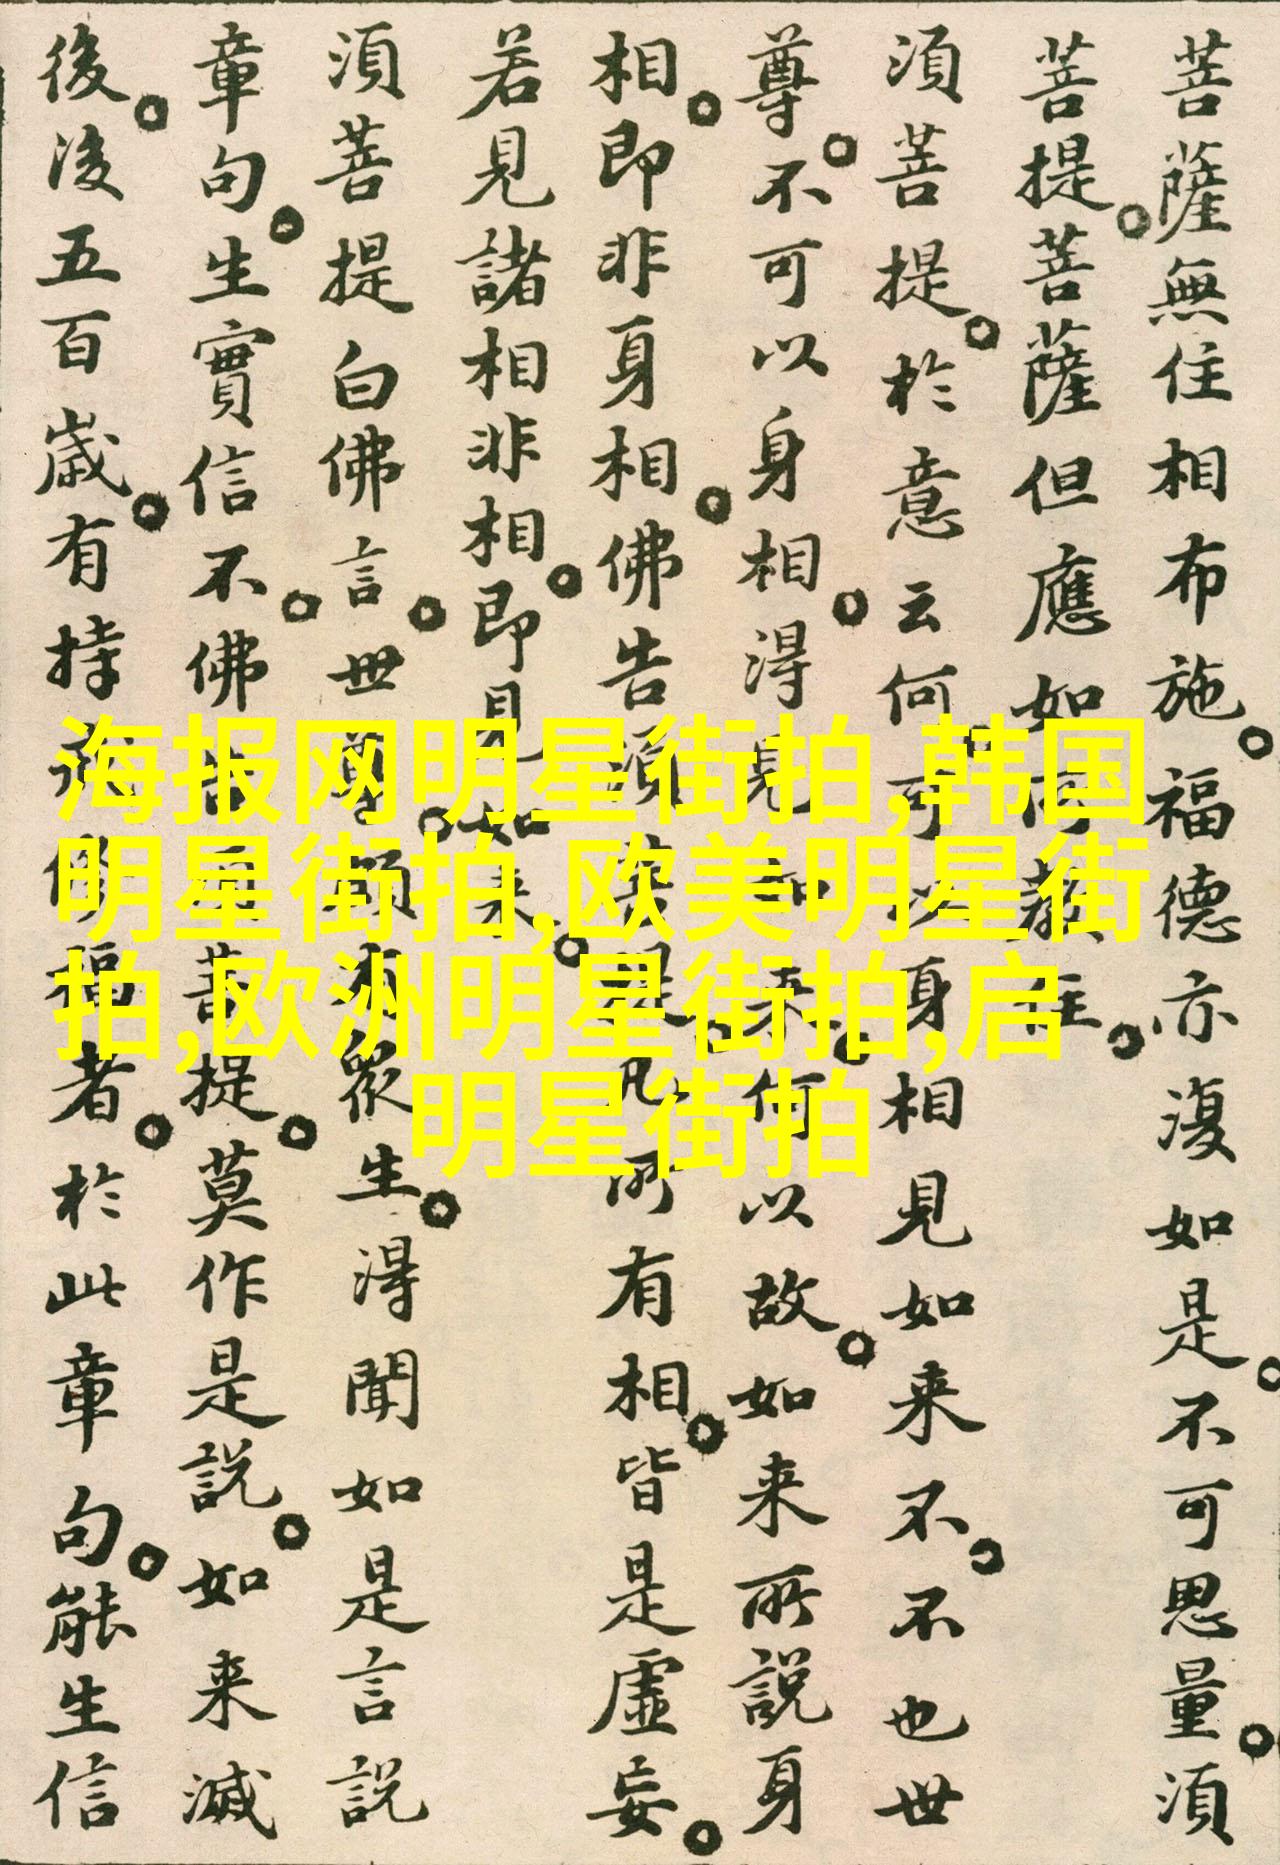 菩薩無住相布施。福德亦復如是。不可思量。須
菩提。菩薩但應如所教住。
須菩提。於意云何。可以身相見如来不。不也世
尊。不可以身相。得見如来。何以故。如来所說身
相。即非身相。佛告須菩提。凡所有相。皆是虛妄。
若見諸相非相。即見如来。
須菩提白佛言。世尊。頗有眾生。得聞如是言說
章句。生實信不。佛告須菩提。莫作是說。如来滅
後。後五百歲。有持戒修福者。於此章句。能生信
海报网明星街拍,韩国
明星街拍,欧美明星街
拍,欧洲明星街拍,启
明星街拍